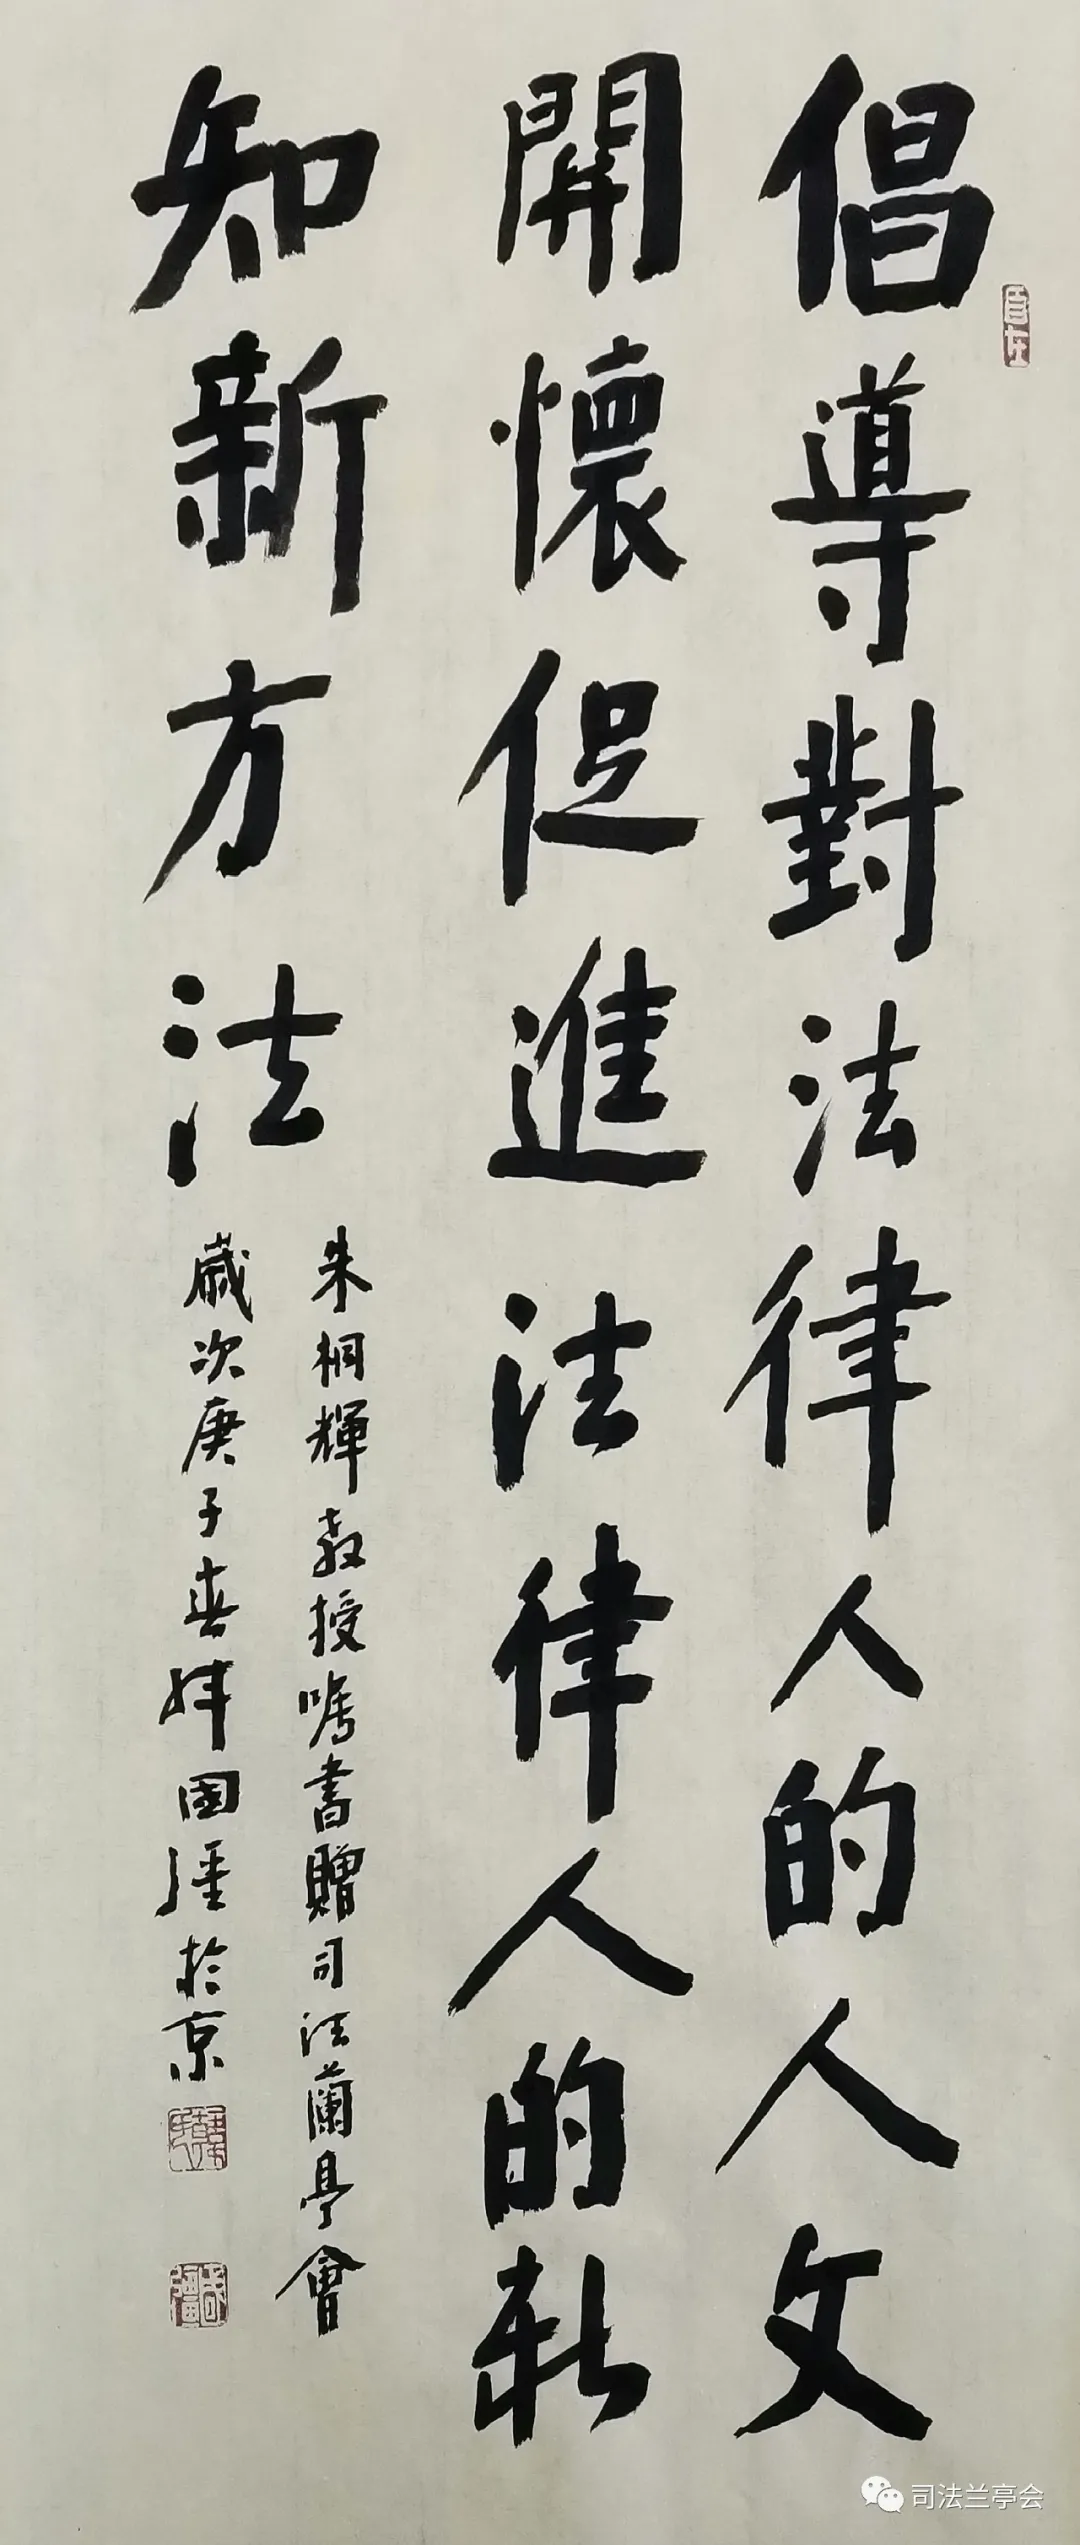 倡導對法律人的人文
開懷促進法律人的新
知新方法
朱桐輝教授嘱書贈司法蘭亭會
歲次庚子春韓國彊於京
自在
司法兰亭会